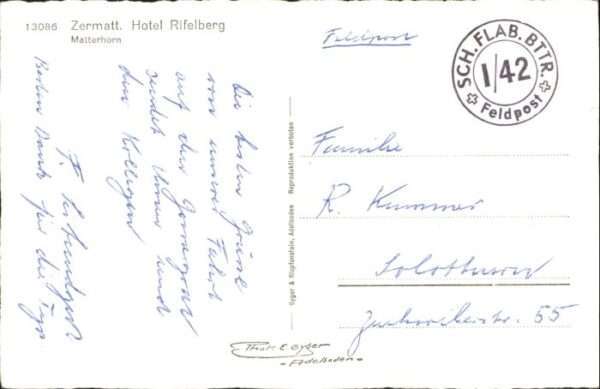 13086 Zermatt. Hotel Rifelberg
Matterhorn
Feldpost
SCH. FLAB. BTTR.
I/42
Feldpost
Die besten Grüsse
von unserer Fahrt
auf den Gornergrat
sendet Ihnen und
den Kollegen
Besten Dank für die
Familie
R. Kummer
Solothurn
Zuchwilerstr. 55
Gyger & Klopfenstein, Adelboden Reproduktion verboten
Phot. E. Gyger
Adelboden